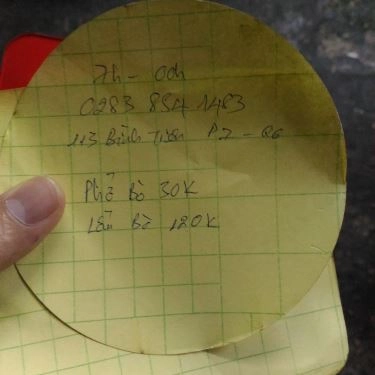 7h - 00h
0283 854 1483
113 Bình Tiên P7 - Q6
Phở Bò 30K
Lẩu Bò 120K